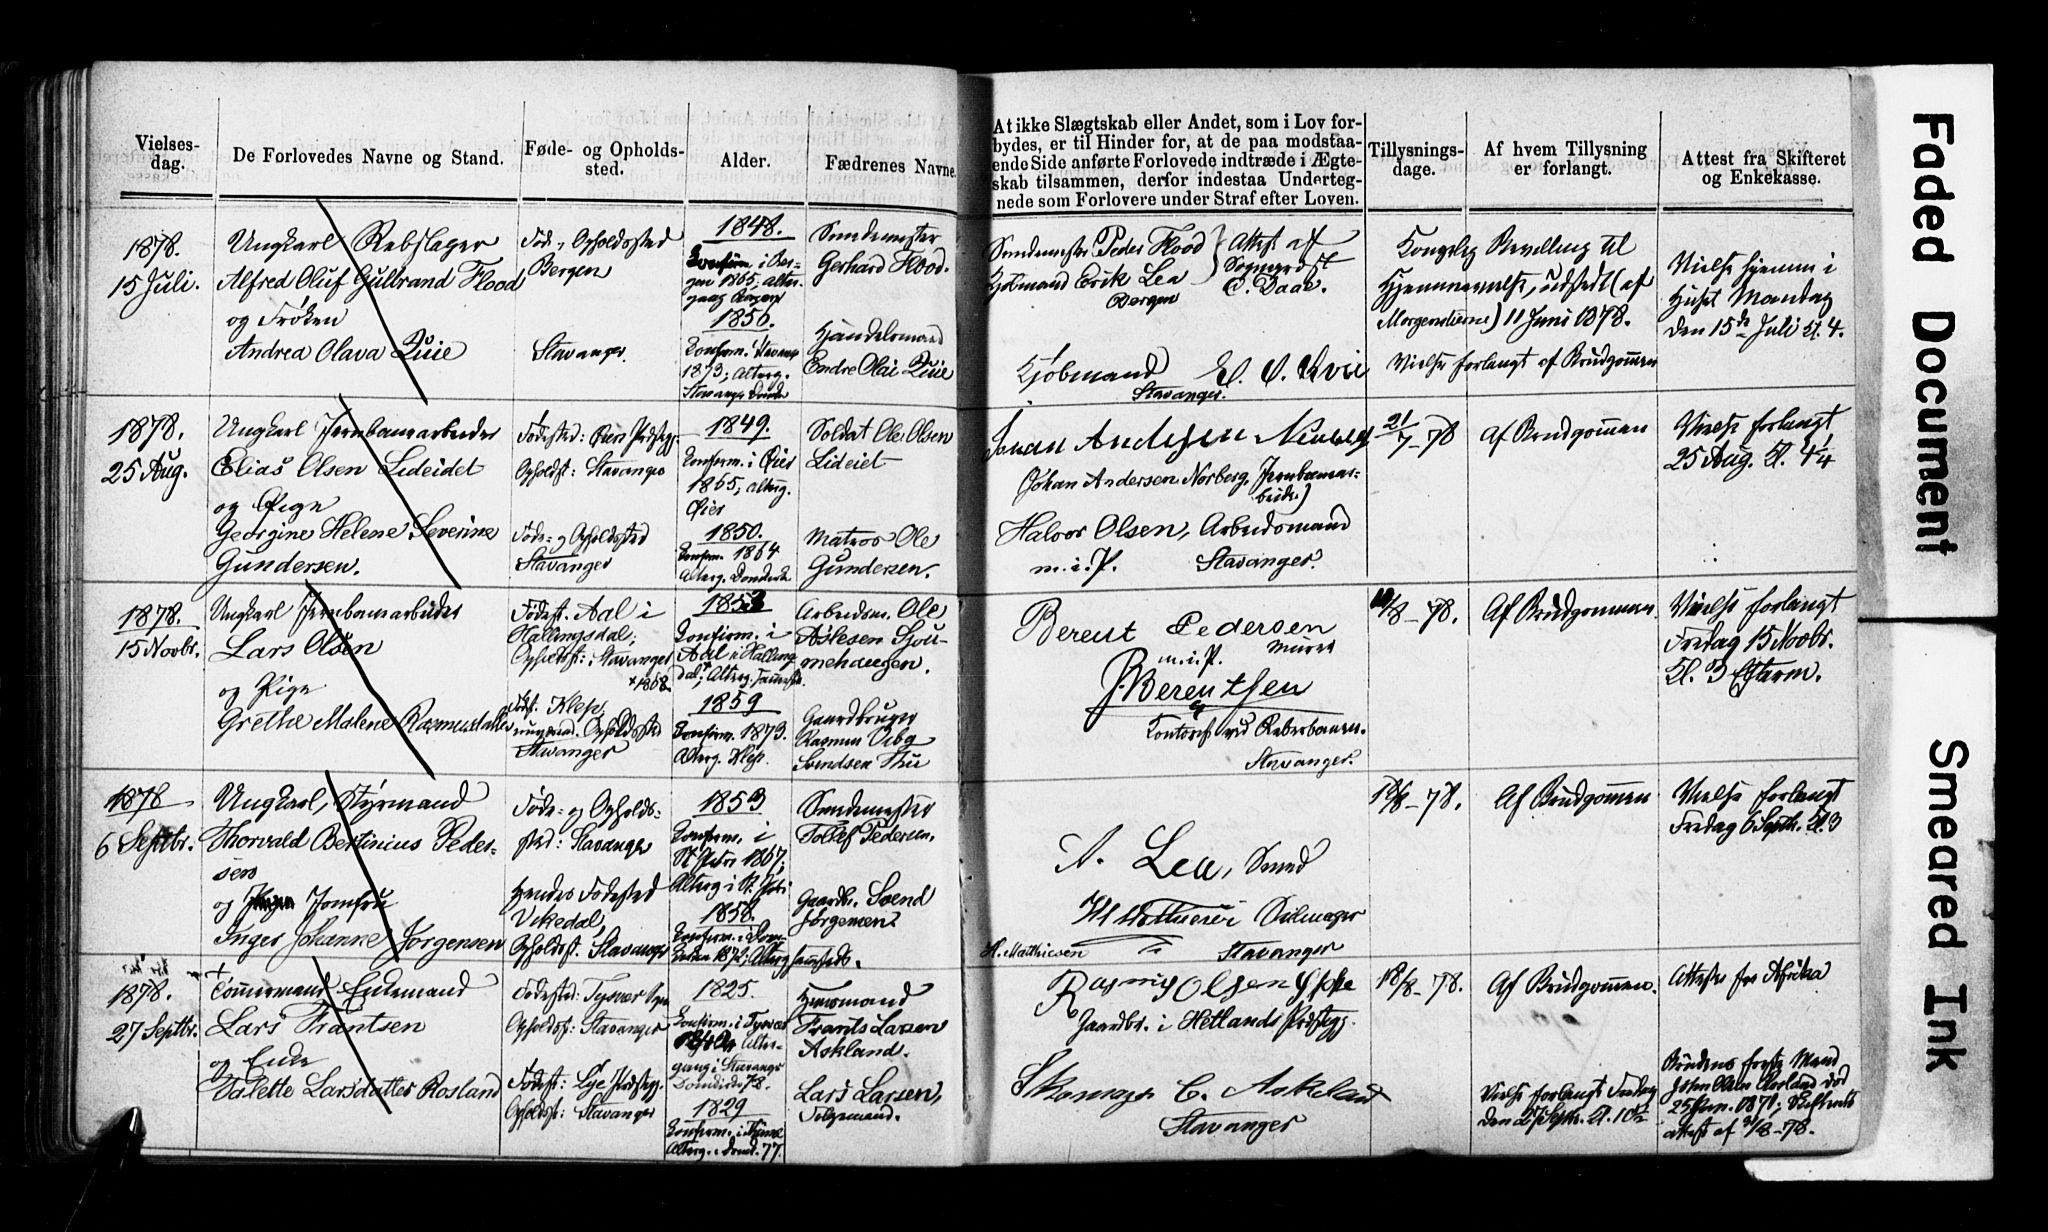 Vielses-
dag.
De Forlovedes Navne og Stand.
Føde- og Opholds-
sted.
Alder.
Fædrenes Navne.
At ikke Slægtskab eller Andet, som i Lov for-
bydes, er til Hinder for, at de paa modstaa-
ende Side anførte Forlovede indtræde i Ægte-
skab tilsammen, derfor indestaa Underteg-
nede som Forlovere under Straf efter Loven.
Tillysnings-
dage.
Af hvem Tillysning
er forlangt.
Attest fra Skifteret
og Enkekasse.
1878.
15 Juli.
Ungkarl Rebslager
Alfred Oluf Gulbrand Flood
og Frøken
Andrea Olava Qvie
Føde- Opholdssted
Bergen
Stavanger.
1848.
Konfirm. i Ber-
gen 1865; Alter-
gang Bergen
1856.
Konfirm. Stavang.
1873; Alterg.
Stavanger Domk.
Smedemester
Gerhard Flood.
Handelsmand
Endre Olai Qvie
Smedemester Peder Flood
Kjøbmand Erik Lea
Bergen
Attest af
Sognepræst
C. Daae.
Kjøbmand E. O. Kvie
Stavanger.
Kongelig Bevilling til
Hjemmevielse, udstedt (af
Morgenstierne) 11 Juni 1878.
Vielse forlangt af Brudgommen
Vielse hjemme i
Huset Mandag
den 15de Juli Kl. 4.
1878.
25 Aug.
Ungkarl Jernbanearbeider
Elias Olsen Lideidet
og Pige
Georgine Helene Severine
Gundersen.
Fødested: Øiers Præstegj.
Opholdst: Stavanger
Føde- og Opholdssted
Stavanger
1849.
Konfirm. i Øier
1865; Alterg.
Øier
1850.
Konfirm. 1864
Alterg. Domkirke
Soldat Ole Olsen
Lideiet
Matros Ole
Gundersen.
Johan Andersen Norberg
Johan Andersen Norberg, Jernbanear-
beider)
Halvor Olsen, Arbeidsmand
m. i. P. Stavanger.
21/7-78
Af Brudgommen
Vielse forlangt
25 Aug. Kl. 4¼
1878.
15 Novbr.
Ungkarl Jernbanearbeider
Lars Olsen
og Pige
Grethe Malene Rasmusdatter
Fødest. Aal i
Hallingdal;
Opholdst: Stavanger
× 1868.
Fødst. Klep,
Opholdssted
Stavanger
1853
Konfirm. i
Aal i Halling-
dal; Alterg.
1859
Konfirm. 1873.
Alterg. Klep.
Arbeidsm. Ole
Aslesen
Gaardbruger
Rasmus
Svendsen Thu
Berent Pedersen
Murer
m. i. P.
J. Berentsen
Kontorist ved Reberbanen.
Stavanger.
10/8-78.
Af Brudgommen.
Vielse forlangt
Fredag 15 Novbr.
Kl. 3 Efterm.
1878
6 Septbr.
Ungkarl, Styrmand
Thorvald Bertinius Peder-
sen
og Jomfru
Inger Johanne Jørgensen
Føde- og Opholds-
sted: Stavanger
Hendes Fødested
Vikedal,
Opholdst. Stavanger
1853
Konfirm. i
St Petri 1867;
Alterg i St. Petri
1856.
Konfirm. i Dom-
kirken 1872; Alterg samsteds.
Smedemester
Tollef Pedersen.
Gaardbr. Svend
Jørgensen
A. Lea, Smed
H. Matthiesen Seilmager
H. Matthiesen Stavanger
18/8-78.
Af Brudgommen
Vielse forlangt
Fredag 6 Septbr. Kl. 3
1878.
27 Septbr.
Tømmermand Enkemand
Lars Frantsen
og Enke
Valette Larsdatter Rosland
Fødested: Tysvær
Opholdst: Stavanger
Fødest: Lye Præstegj.
Opholdst: Stavanger
1825.
Konfirm. i Tysvær
1840; Alter-
gang i Stavanger
Domkirke 78.
1829
Konfirm. i Thime
Alterg. i Domk. 77.
Huusmand
Frants Larsen
Askland.
Lars Larsen,
Rasmus Olsen
Gaardbr. i Hetlands Præstegj.
Skomager C. Askeland
Stavanger
18/8-78.
Af Brudgommen.
Vielse forlangt Fredag
den 27 Septbr. Kl. 10½
Attester fra Afrika
Brudens første Mand
John Olsen Rosland død
25 Jan. 1871; Skifteretts
attest af 21/8-78.
Faded Document
Smeared Ink